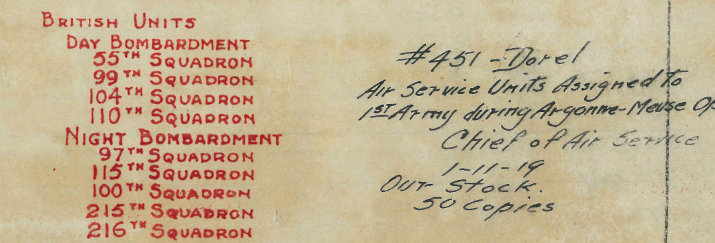 BRITISH UNITS
DAY BOMBARDMENT
55TH SQUADRON
99TH SQUADRON
104TH SQUADRON
110TH SQUADRON
NIGHT BOMBARDMENT
97TH SQUADRON
115TH SQUADRON
100TH SQUADRON
215TH SQUADRON
216TH SQUADRON
#451 - Dorel
Air Service Units Assigned to
1ST Army during Argonne-Meuse Op
Chief of Air Service
1-11-19
Our Stock.
50 Copies